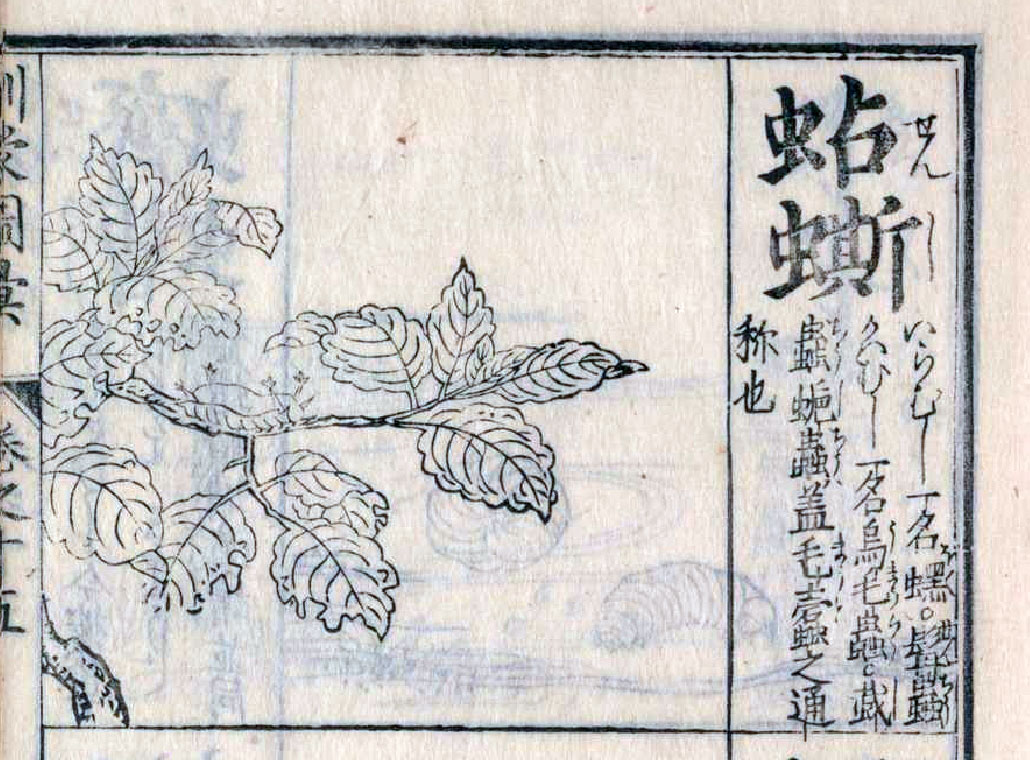 蛅蟖
せんし
いらむし一名蟔。髯蟲
けむし一名烏毛蟲。蛓
蟲蚝蟲蓋毛蠹之通
称也
訓蒙圖彙 卷之十五